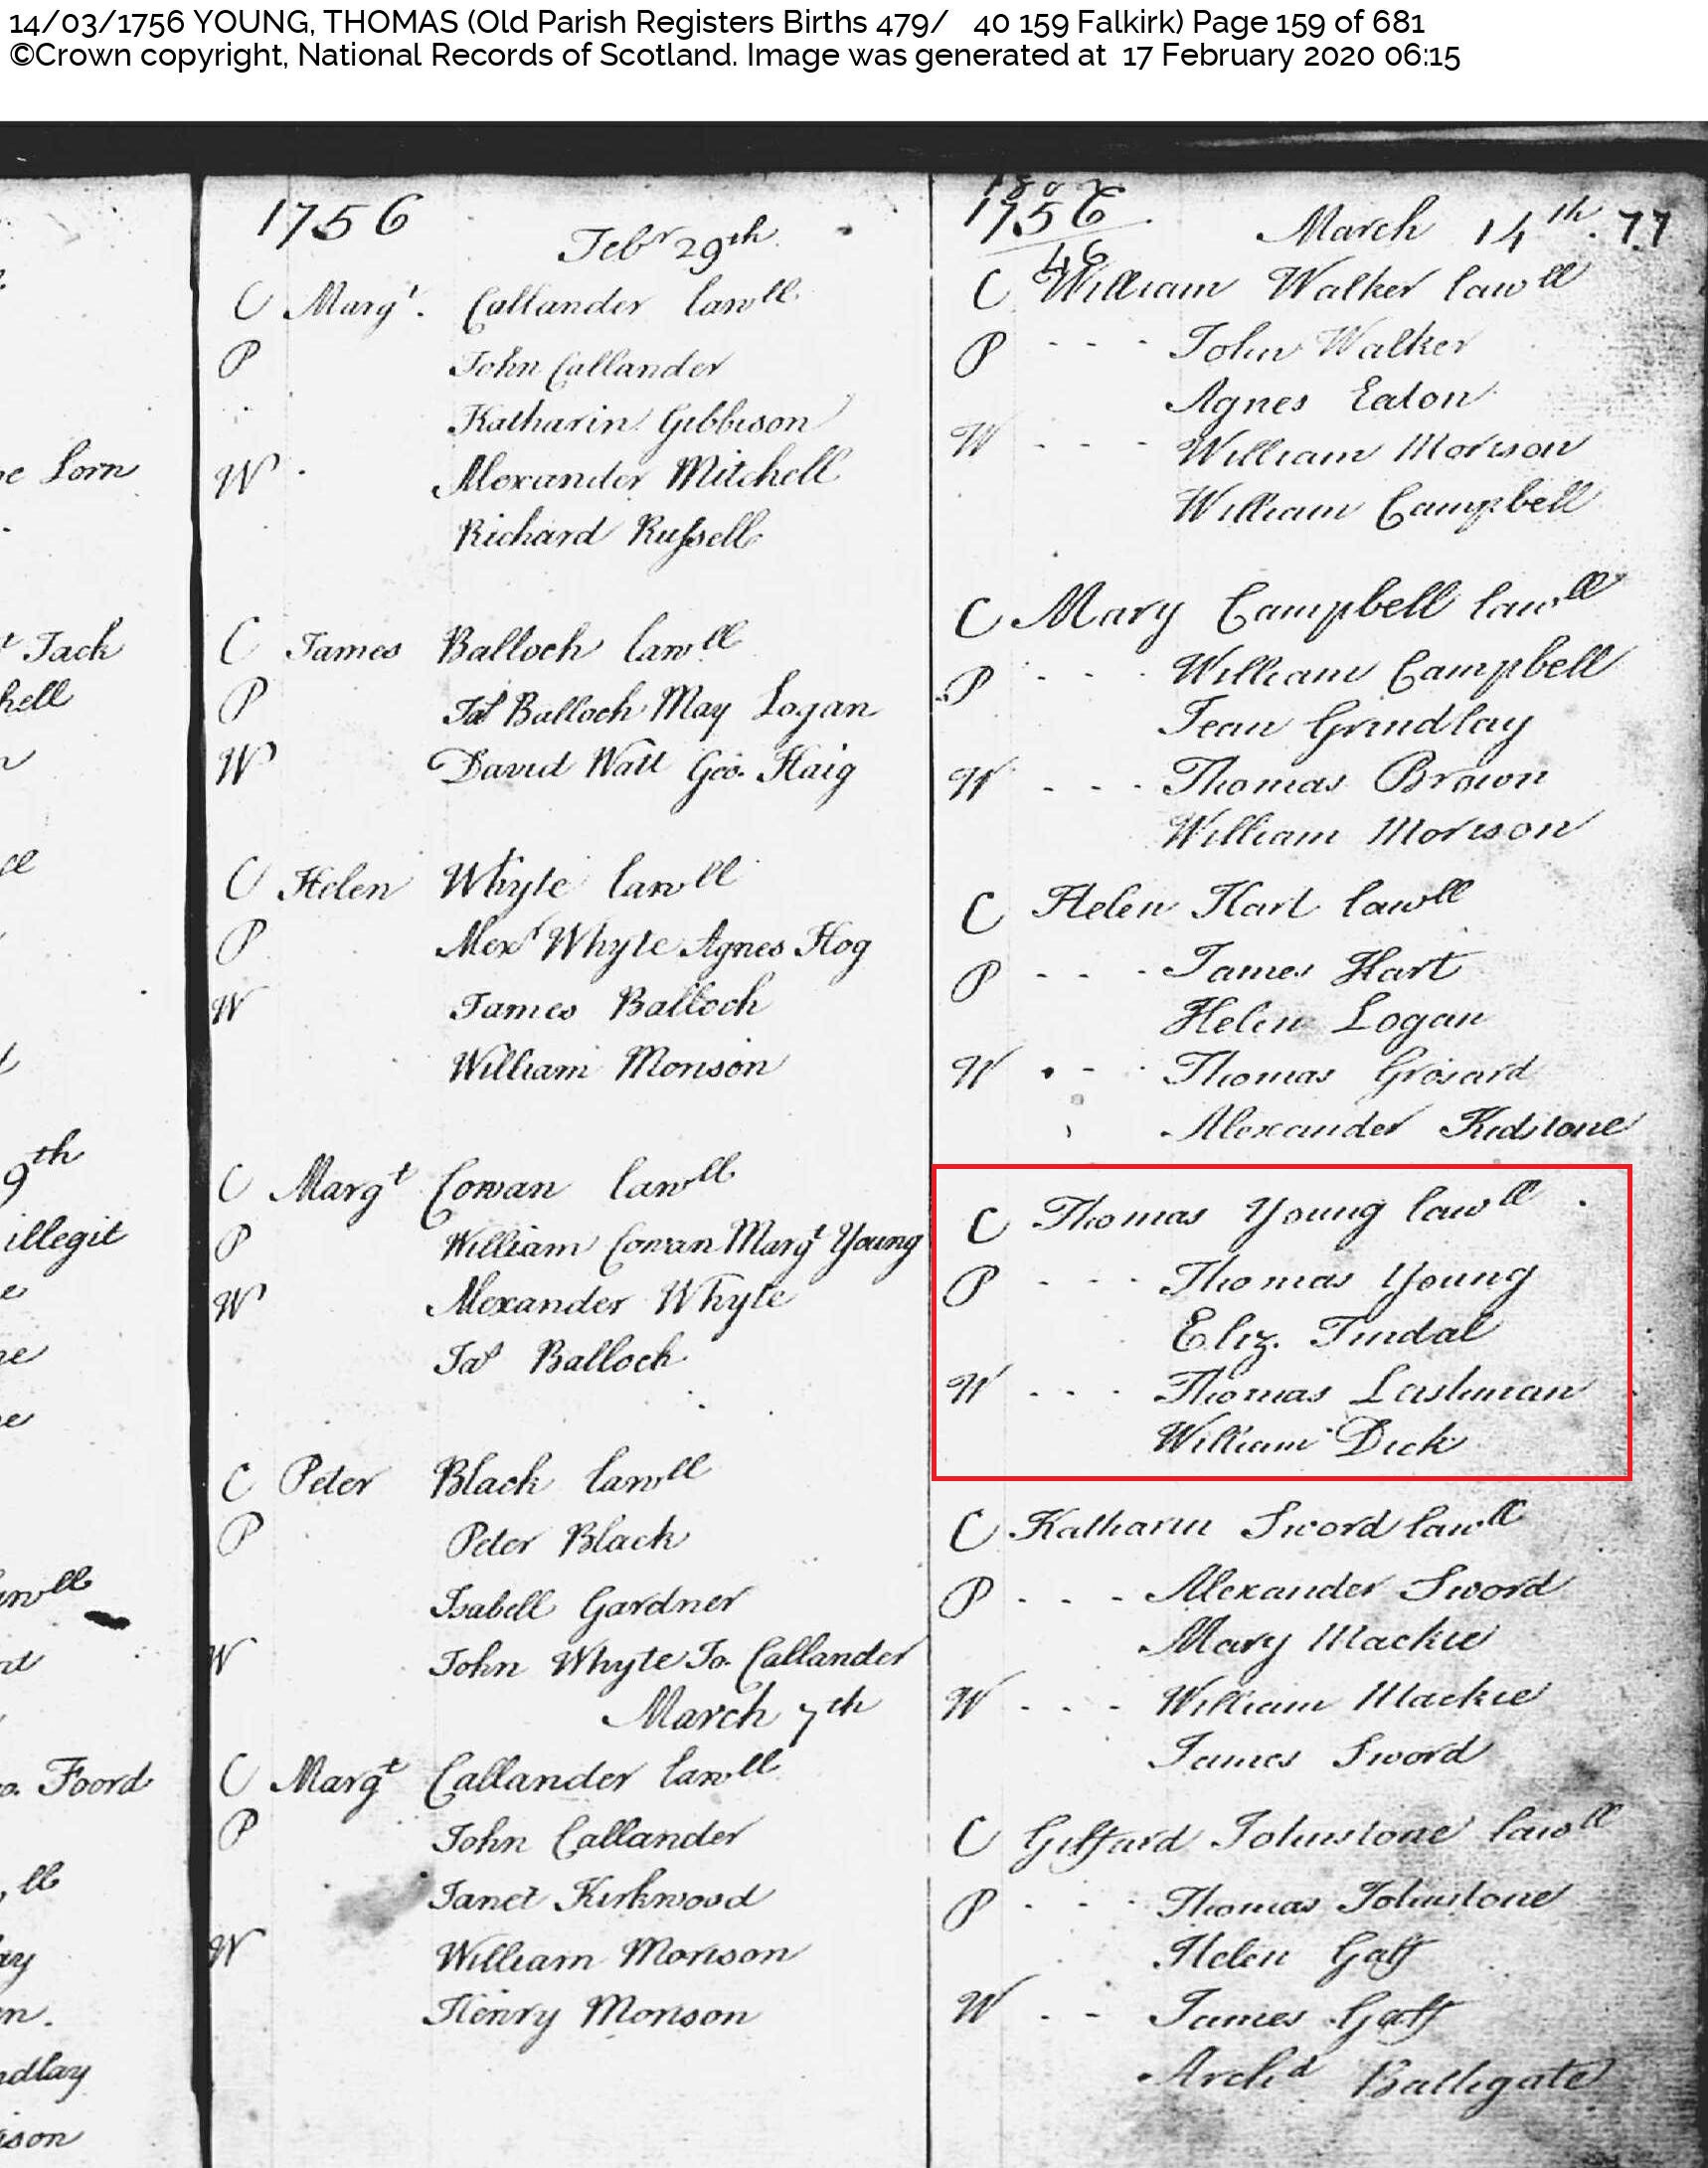 14/03/1756 YOUNG, THOMAS (Old Parish Registers Births 479/ 40 159 Falkirk) Page 159 of 681
©Crown copyright, National Records of Scotland. Image was generated at 17 February 2020 06:15
e Lorn
t Jack
hell
9th
illegit
o. Foord
ll
dlay
ison
1756
Febr 29th
C Margt. Callander lawll
P John Callander
Katharin Gibbison
W Alexander Mitchell
Richard Russell
C James Balloch lawll
P Jas Balloch May Logan
W David Watt Geo. Haig
C Helen Whyte lawll
P Alexr Whyte Agnes Hog
W James Balloch
William Morison
C Margt Cowan lawll
P William Cowan Margt Young
W Alexander Whyte
Jas Balloch
C Peter Black lawll
P Peter Black
Isabell Gardner
W John Whyte Jo. Callander
March 7th
C Margt Callander lawll
P John Callander
Janet Kirkwood
W William Morison
Henry Morison
1756 March 14th. 77
46
C William Walker lawll
P - - - John Walker
Agnes Eaton
W - - - William Morison
William Campbell
C Mary Campbell lawll
P - - - William Campbell
Jean Grindlay
W - - - Thomas Brown
William Morison
C Helen Hart lawll
P - - - James Hart
Helen Logan
W - - - Thomas Grosard
Alexander Kidstone
C Thomas Young lawll
P - - - Thomas Young
Eliz. Tindal
W - - - Thomas Lishman
William Dick
C Katharin Sword lawll
P - - - Alexander Sword
Mary Mackie
W - - - William Mackie
James Sword
C Giffard Johnstone lawll
P - - - Thomas Johnstone
Helen Gaff
W - - James Gaff
Archd Bathgate